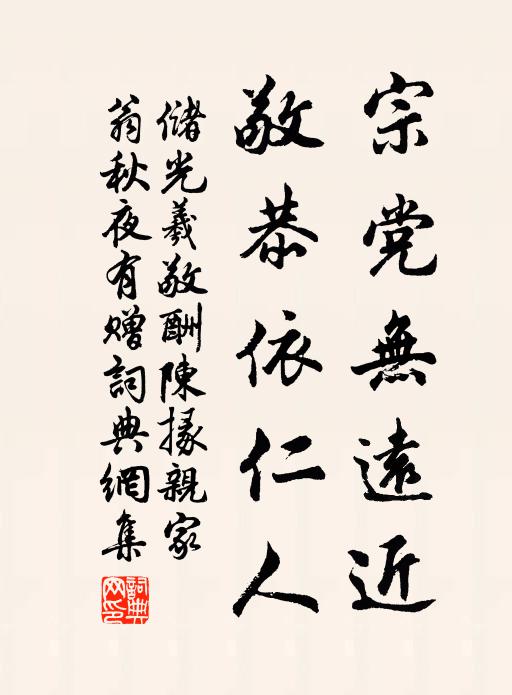 宗党無遠近
敬恭依仁人
儲光羲敬酬陳掾親家
翁秋夜有贈詞典網集
詞典
网印